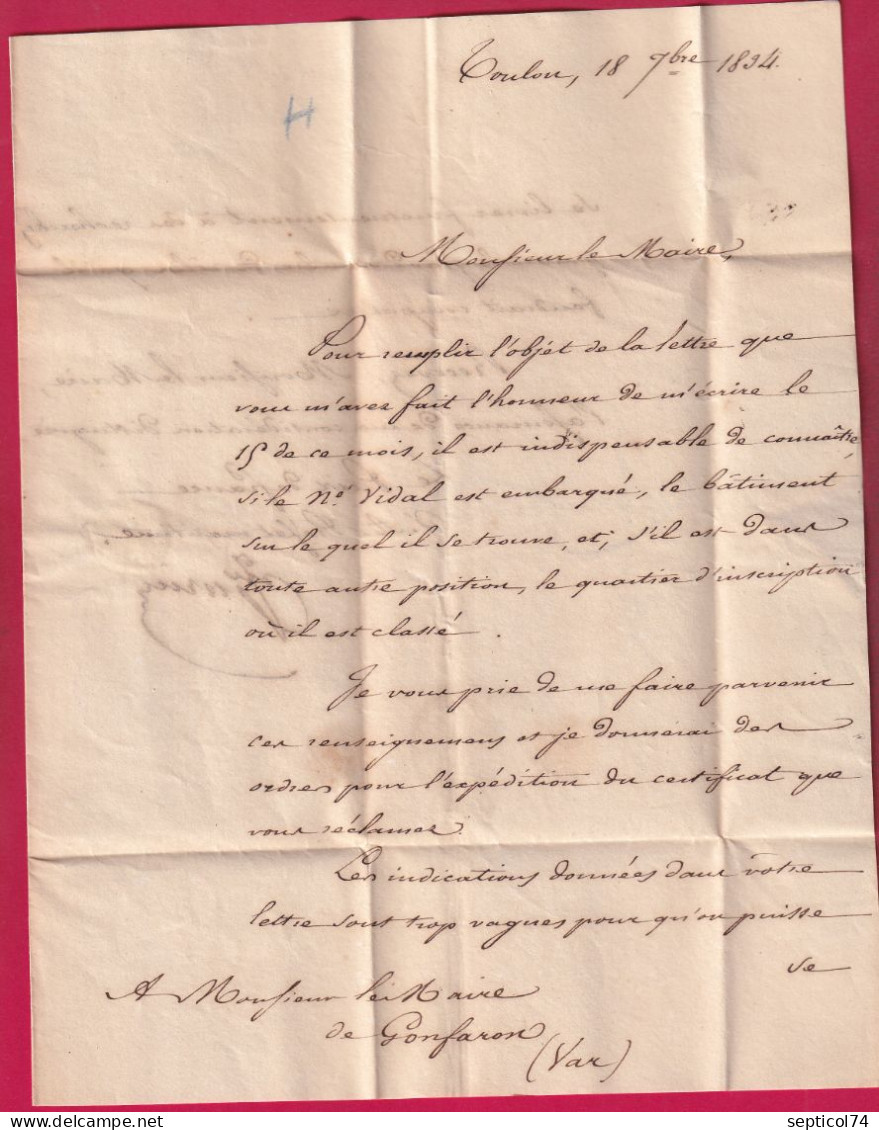 Toulon, 18 7bre 1834.
H
Monsieur le Maire,
Pour remplir l'objet de la lettre que
vous m'avez fait l'honneur de m'écrire le
15 de ce mois, il est indispensable de connaître,
si le Né Vidal est embarqué, le bâtiment
sur le quel il se trouve, et, s'il est dans
toute autre position, le quartier d'inscription
où il est classé.
Je vous prie de me faire parvenir
ces renseignemens et je donnerai des
ordres pour l'expédition du certificat que
vous réclamez.
Les indications données dans vôtre
lettre sont trop vagues pour qu'on puisse
se
A Monsieur le Maire
de Gonfaron
(Var)
septicol74